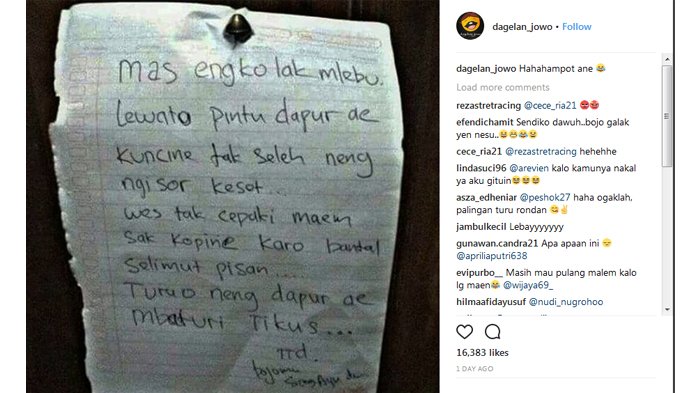 mas engko lak mlebu.
Lewato pintu dapur ae
Kuncine tak seleh neng
ngisor keset
wes tak cepaki maem
sak kopine karo bantal
selimut pisan....
Turuo neng dapur ae
mbaturi Tikus...
TTd.
bojomu
dagelan_jowo • Follow
dagelan_jowo Hahahampot ane 😂
Load more comments
rezastretracing @cece_ria21
efendichamit Sendiko dawuh..bojo galak
yen nesu..
cece_ria21 @rezastretracing hehehhe
lindasuci96 @arevien kalo kamunya nakal
ya aku gituin
asza_edheniar @peshok27 haha ogaklah,
palingan turu rondan
jambulkecil Lebayyyyyyy
gunawan.candra21 Apa apaan ini
@apriliaputri638
evipurbo__ Masih mau pulang malem kalo
lg maen😂 @wijaya69_
hilmaafidayusuf @nudi_nugrohoo
16,383 likes
1 DAY AGO